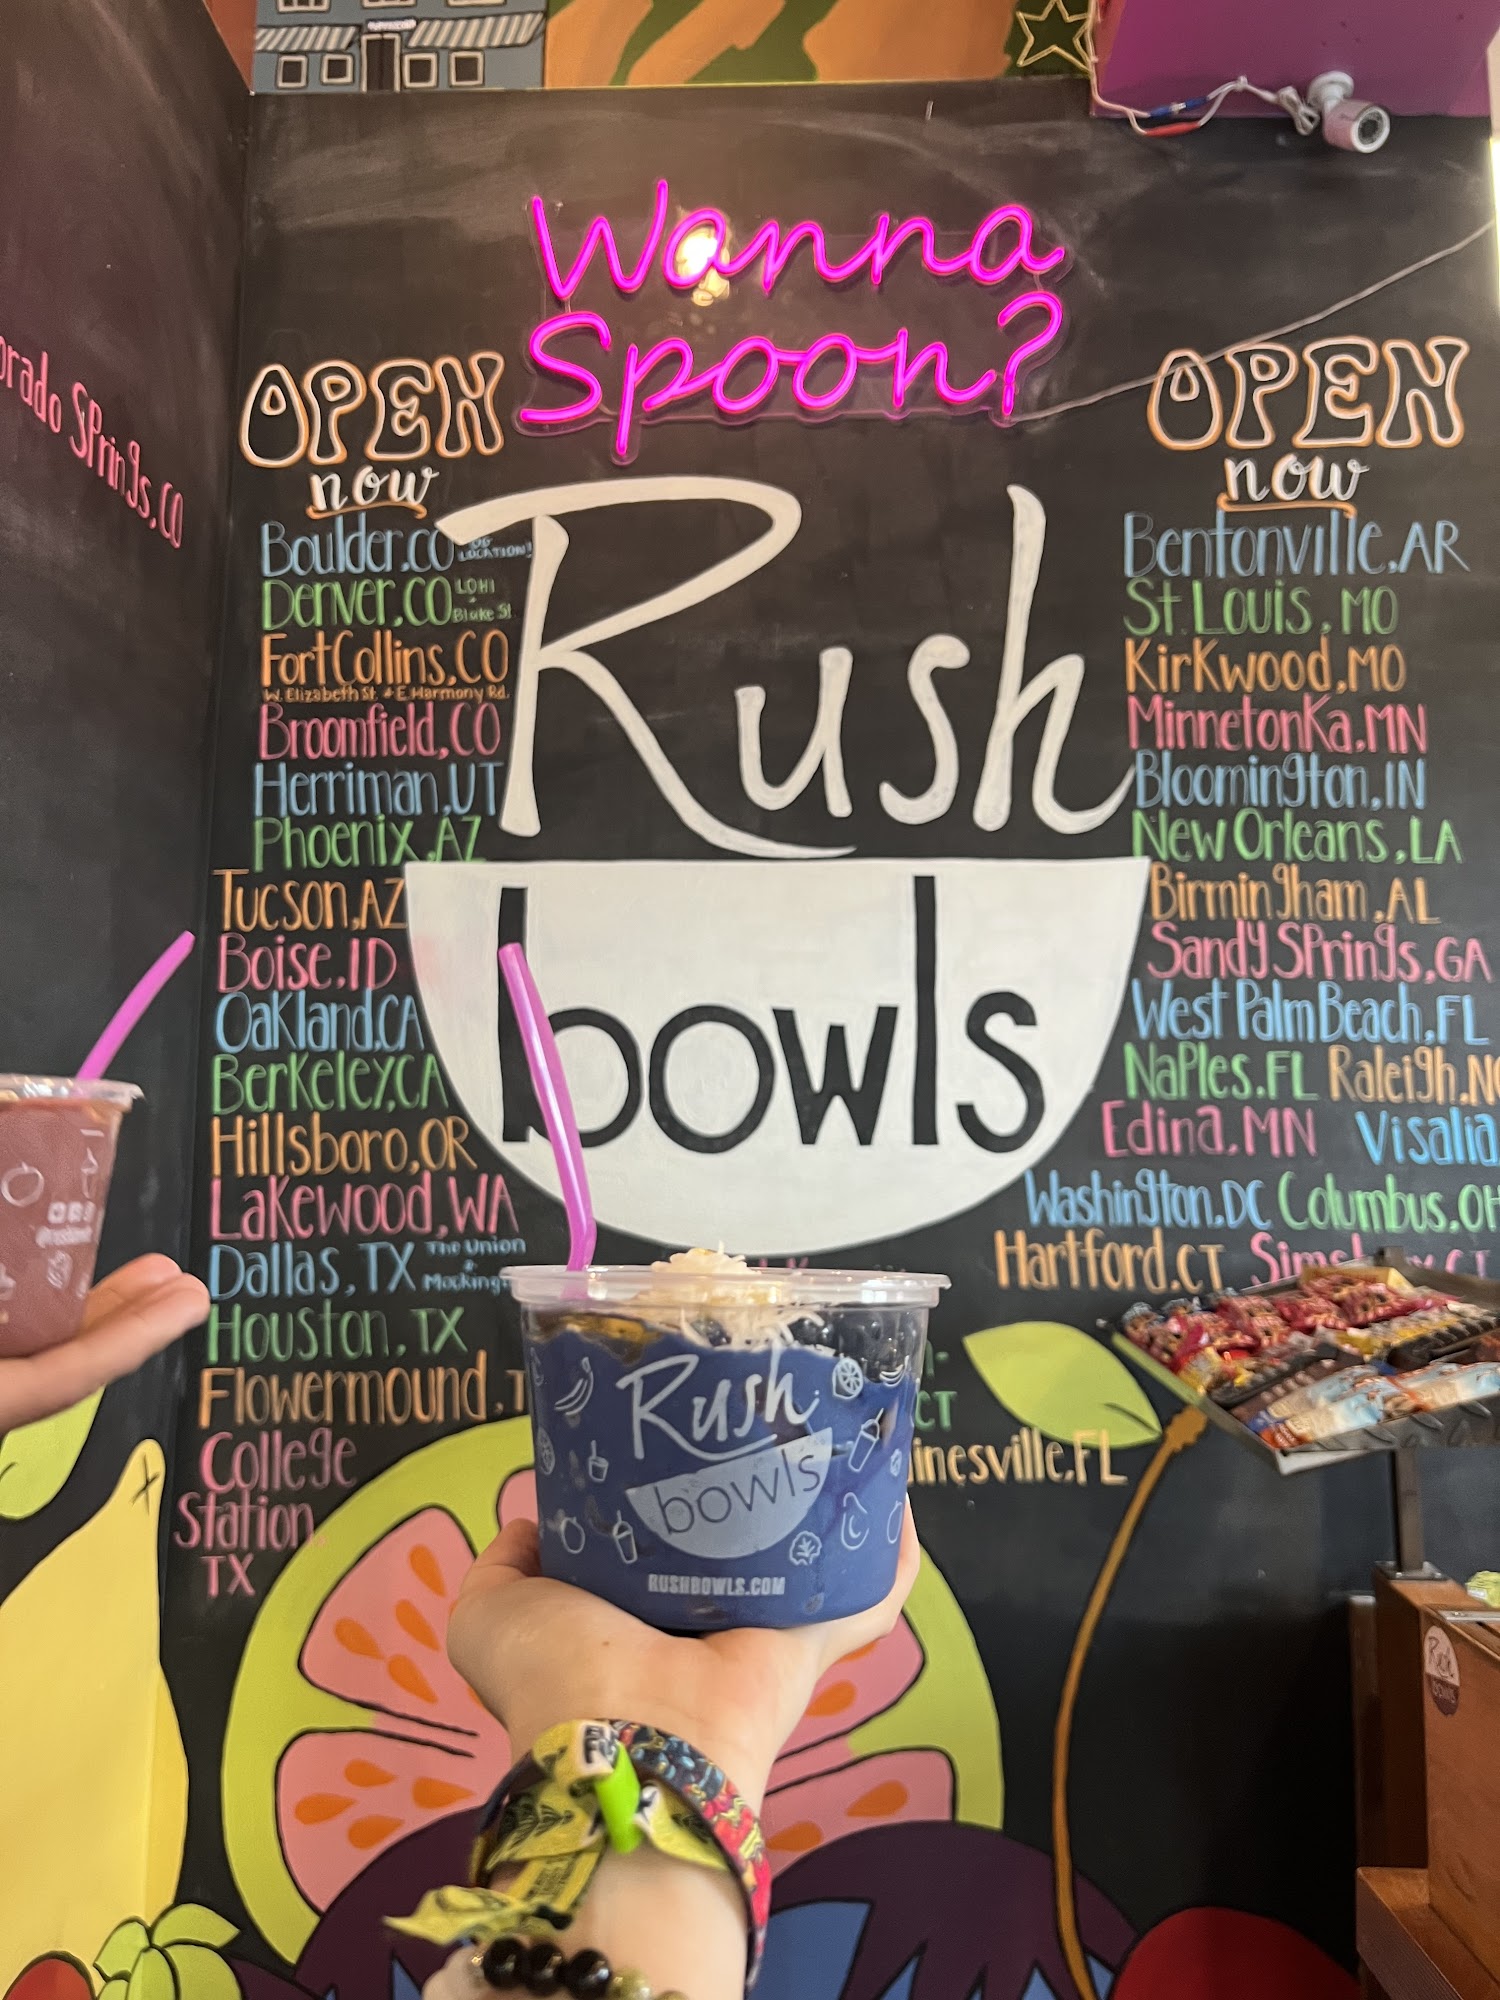 Wanna
Spoon?
orado Springs, CO
OPEN
now
Boulder, CO OG LOCATION!
Denver, CO LOHI + Blake St.
Fort Collins, CO
W. Elizabeth St. + E. Harmony Rd.
Broomfield, CO
Herriman, UT
Phoenix, AZ
Tucson, AZ
Boise, ID
Oakland, CA
Berkeley, CA
Hillsboro, OR
Lakewood, WA
Dallas, TX The Union
Houston, TX
Flowermound, T
College
Station,
TX
Rush
bowls
OPEN
now
Bentonville, AR
St. Louis, MO
Kirkwood, MO
Minnetonka, MN
Bloomington, IN
New Orleans, LA
Birmingham, AL
Sandy Springs, GA
West Palm Beach, FL
Naples, FL Raleigh, NC
Edina, MN Visalia,
Washington, DC Columbus, OH
Hartford, CT CT
CT
inesville, FL
Rush
bowls
RUSHBOWLS.COM
Rush
bowls